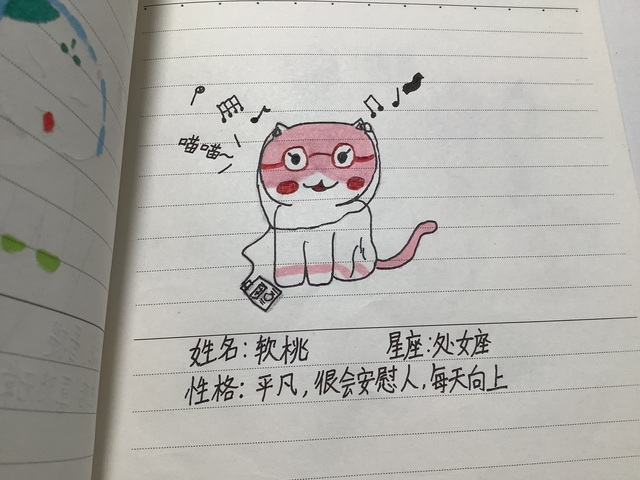 喵喵~
姓名:软桃 星座:处女座
性格:平凡,很会安慰人,每天向上